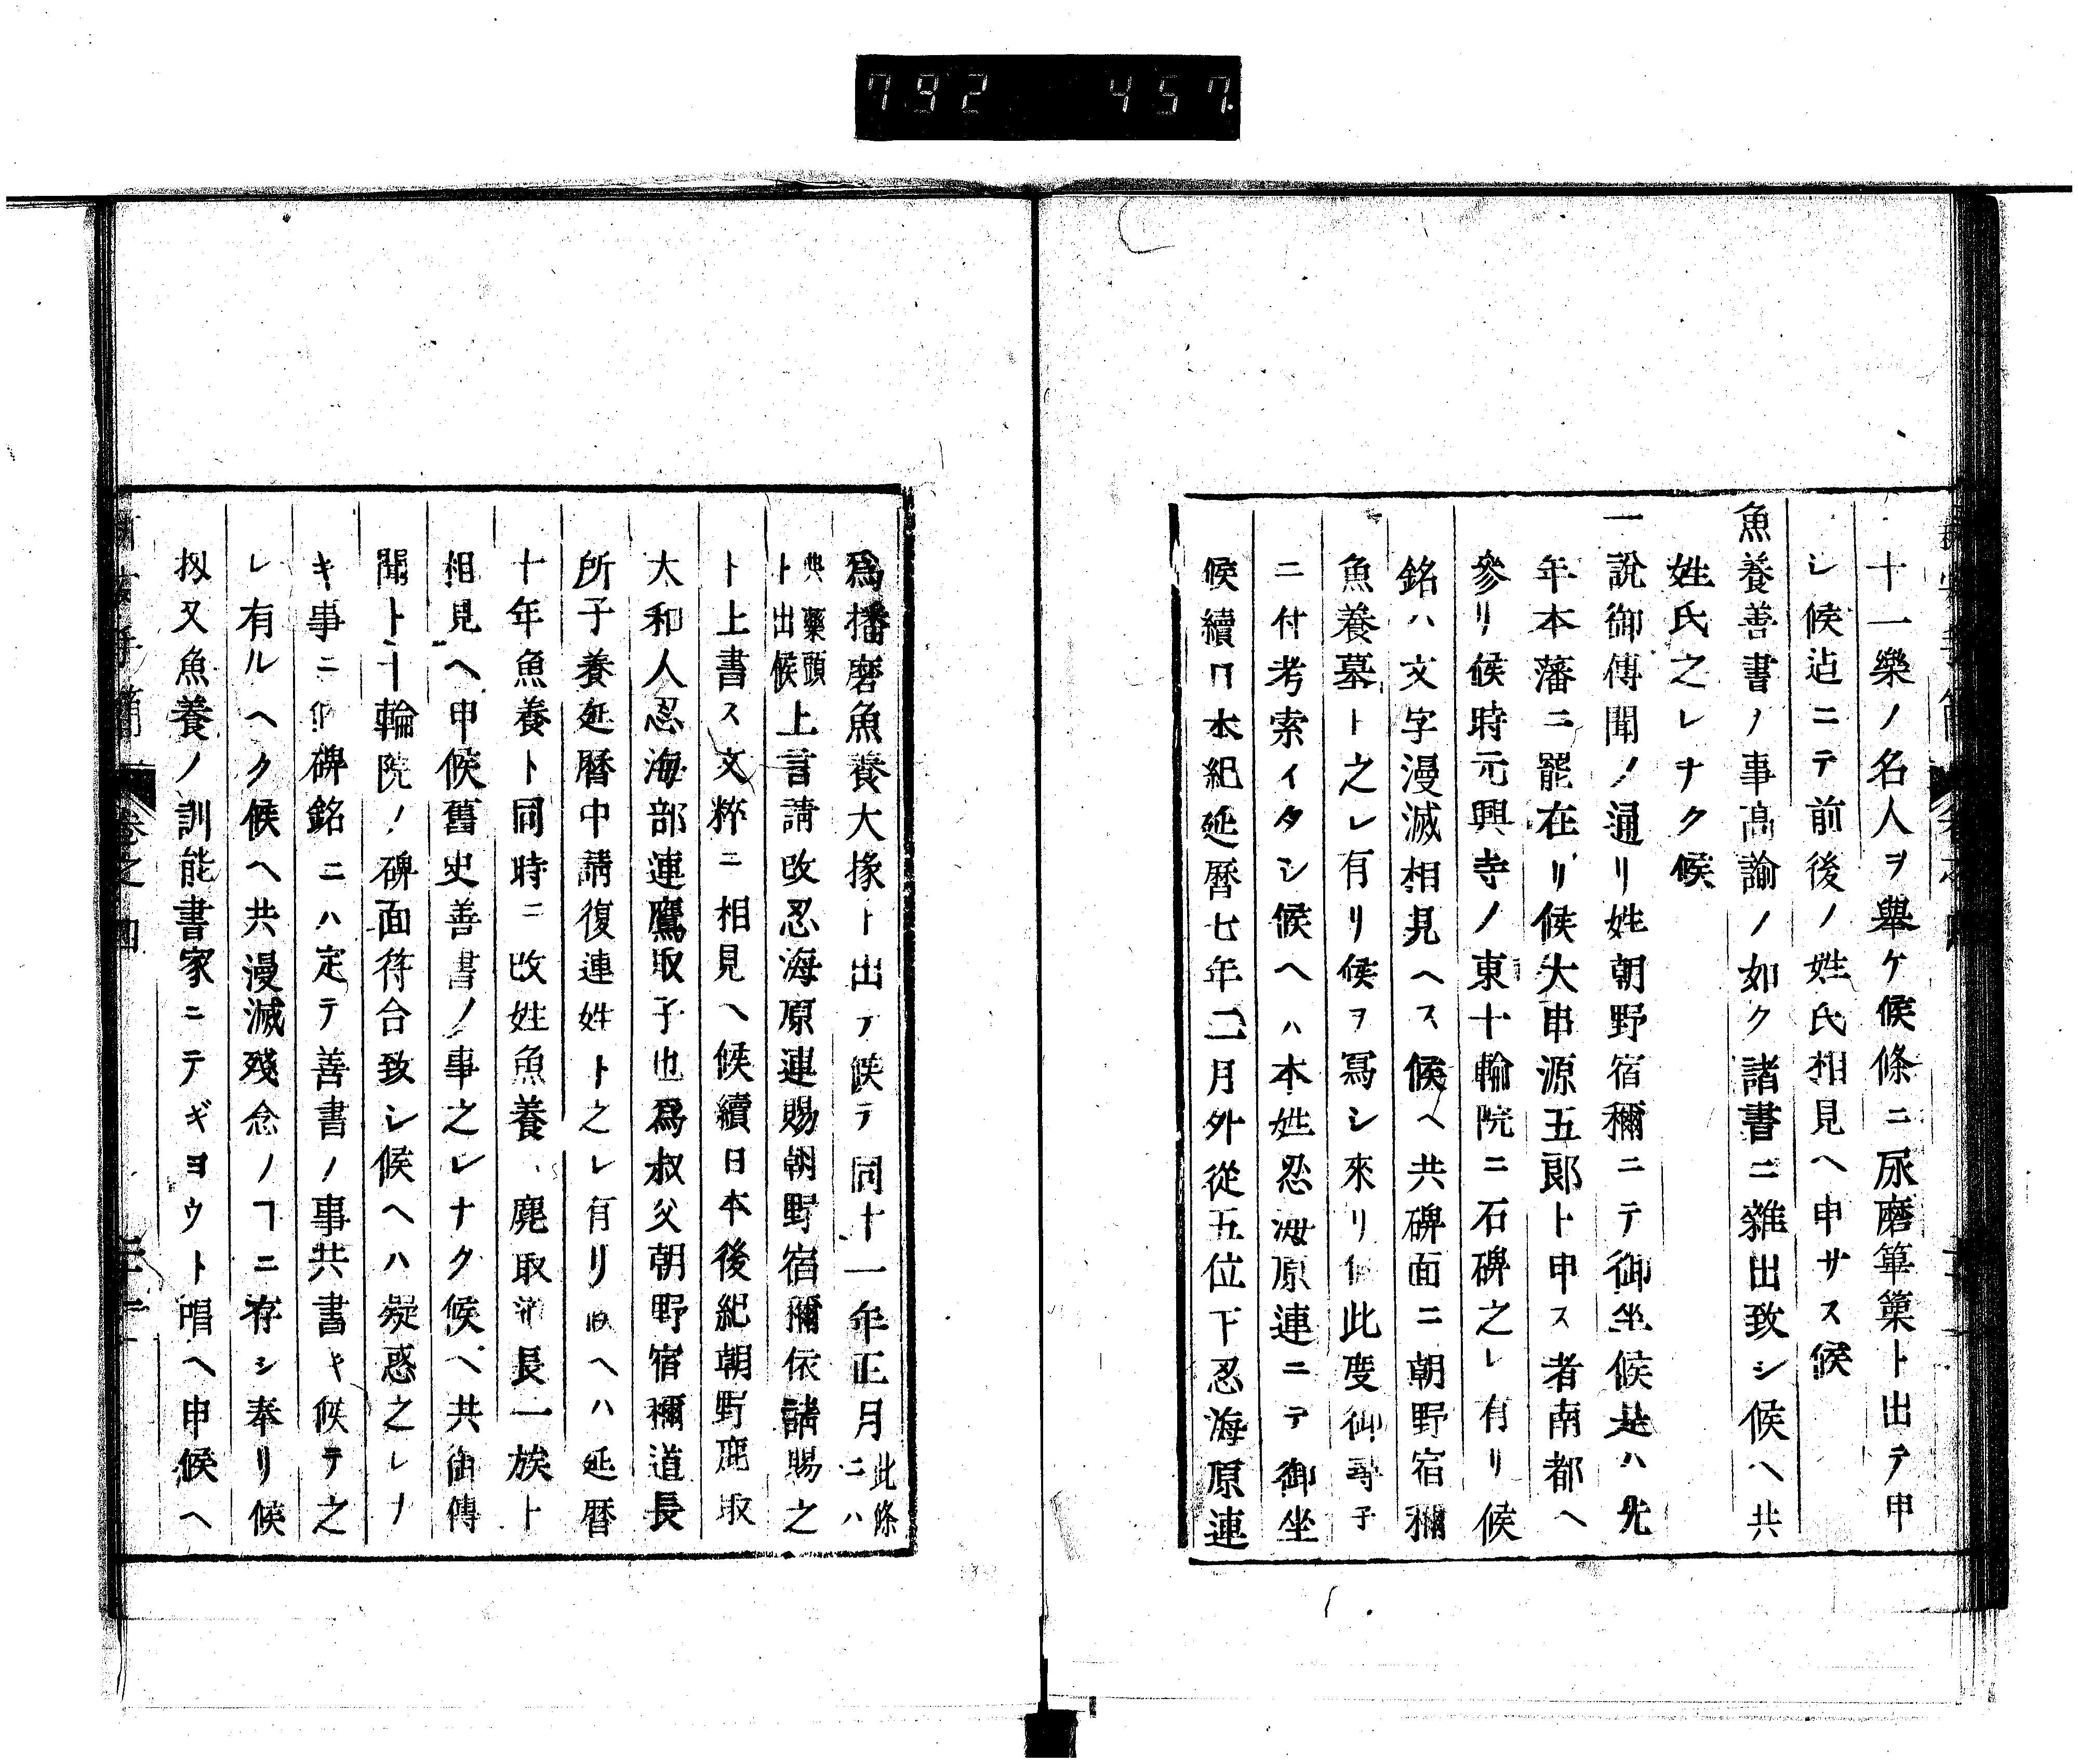 792 457
十一樂ノ名人ヲ擧ケ候條ニ尿磨篳篥ト出テ申
シ候迠ニテ前後ノ姓氏相見ヘ申サス候
魚養善書ノ事高諭ノ如ク諸書ニ雜出致シ候ヘ共
姓氏之レナク候
一說御傳聞ノ通リ姓朝野宿禰ニテ御坐候是ハ先
年本藩ニ罷在リ候大串源五郎ト申ス者南都ヘ
參リ候時元興寺ノ東十輪院ニ石碑之レ有リ候
銘ハ文字漫滅相見ヘス候ヘ共碑面ニ朝野宿禰
魚養墓ト之レ有リ候ヲ寫シ來リ此度御尋子
ニ付考索イタシ候ヘハ本姓忍海原連ニテ御坐
候續日本紀延曆七年二月外從五位下忍海原連
爲播磨魚養大掾ト出テ候テ同十一年正月此條ニハ
典藥頭ト出候上言請改忍海原連賜朝野宿禰依請賜之
ト上書ス文粹ニ相見ヘ候續日本後紀朝野鹿取
大和人忍海部連鷹取子也爲叔父朝野宿禰道長
所子養延曆中請復連姓ト之レ有リヘハ延曆
十年魚養ト同時ニ改姓魚養、鹿取道長一族ト
相見ヘ申候舊史善書ノ事之レナク候ヘ共御傳
聞ト十輪院ノ碑面符合致シ候ヘハ疑惑之レナ
キ事ニ碑銘ニハ定テ善書ノ事共書キ候テ之
レ有ルヘク候ヘ共漫滅殘念ノヿニ存シ奉リ候
扨又魚養ノ訓能書家ニテギヨウト唱ヘ申候ヘ
卷之四